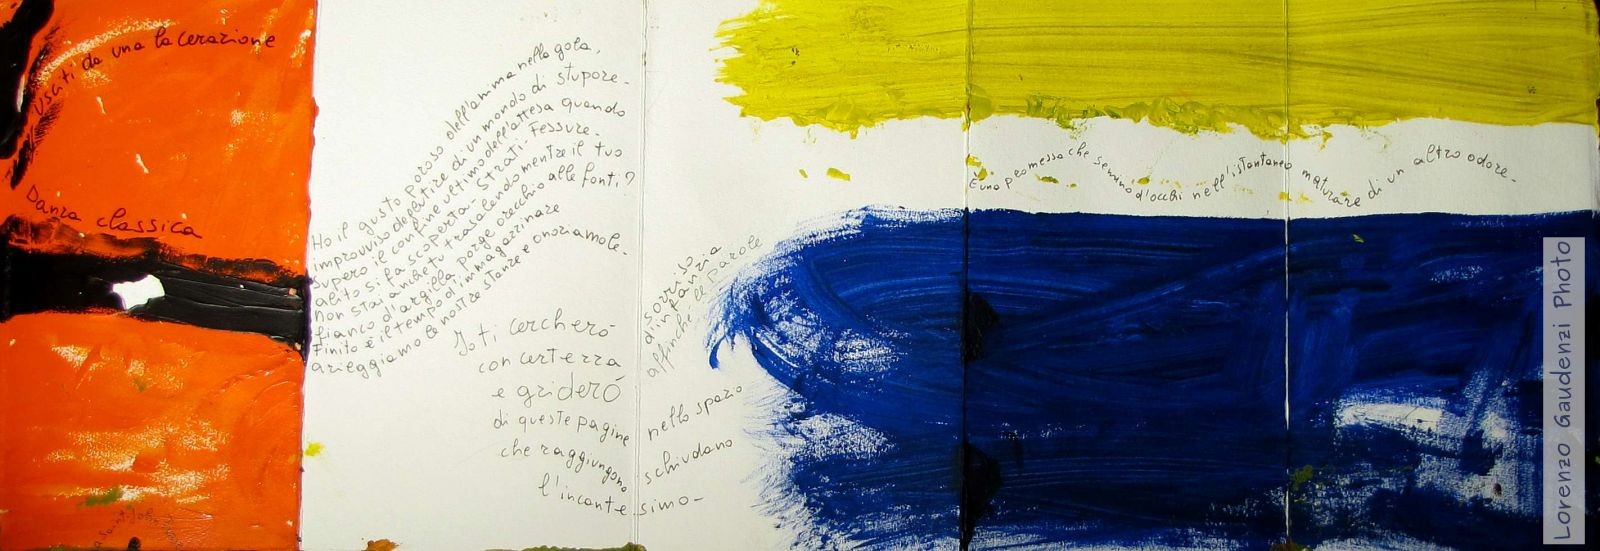 usciti da una lacerazione
Danza classica
Ho il gusto poroso dell'amma nella gola,
improvviso depentire di un mondo di stupore.
supero il confine ultimo dell'attesa quando
alito si fa scoperta. Strati. Fessure.
non stai anche tu trasalendo mentre il tuo
fianco d'argilla porge orecchio alle fonti?
Finito è il tempo d'immagazzinare
arieggiamo le nostre stanze e onoriamole.
Io ti cercherò
con certezza
e griderò
di queste pagine
che raggiungono
l'incantesimo-
di sorriso
d'infanzia
affinché le parole
nello spazio
schiudano
È una promessa che semino d'occhi nell'istantaneo maturare di un altro odore.
Lorenzo Gaudenzi Photo